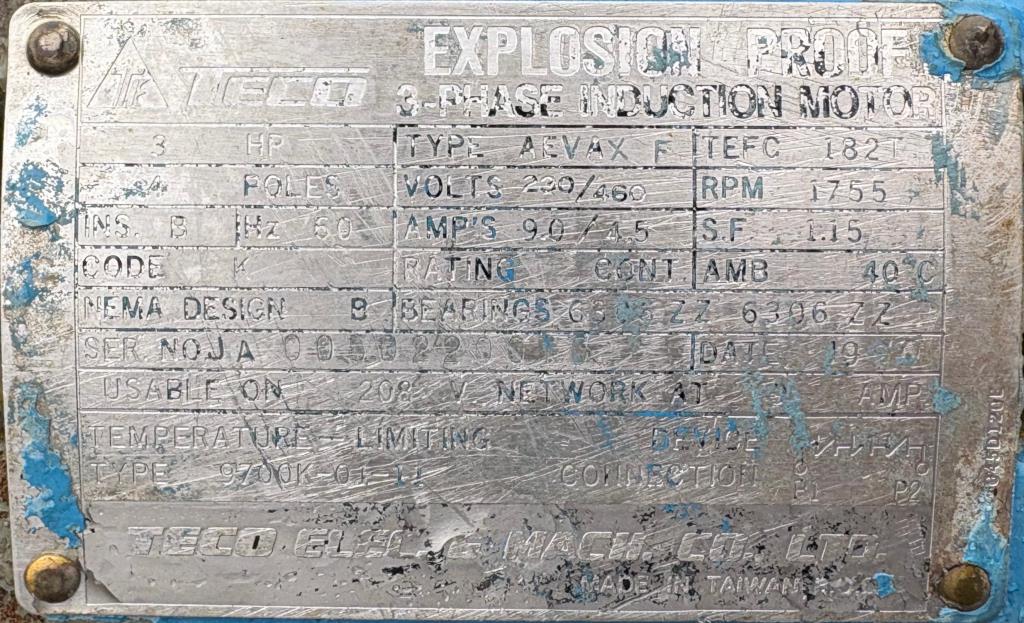 TECO
EXPLOSION PROOF
3-PHASE INDUCTION MOTOR
3 HP TYPE AEVAX F TEFC 182T
4 POLES VOLTS 230/460 RPM 1755
INS. B Hz 60 AMP'S 9.0/4.5 S.F. 1.15
CODE K RATING CONT. AMB 40°C
NEMA DESIGN B BEARINGS 6306ZZ 6306ZZ
SER.NO. JA DATE 19
USABLE ON 208 V. NETWORK AT AMP.
TEMPERATURE-LIMITING DEVICE
TYPE 9700K-01-11 CONNECTION P1 P2
TECO ELEC. & MACH. CO., LTD.
MADE IN TAIWAN R.O.C.